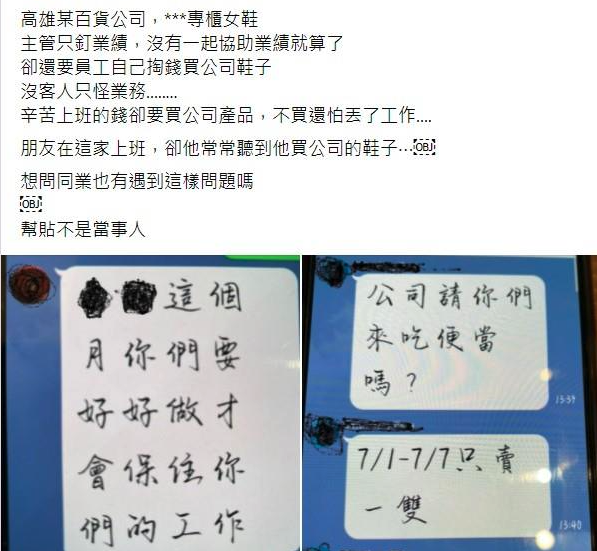 高雄某百貨公司，***專櫃女鞋
主管只釘業績，沒有一起協助業績就算了
卻還要員工自己掏錢買公司鞋子
沒客人只怪業務........
辛苦上班的錢卻要買公司產品，不買還怕丟了工作....
朋友在這家上班，卻他常常聽到他買公司的鞋子…OBJ
想問同業也有遇到這樣問題嗎
OBJ
幫貼不是當事人
這個
月你們要
好好做才
會保住你
們的工作
公司請你們
來吃便當
嗎？
13:39
7/1-7/7只賣
一雙
13:40